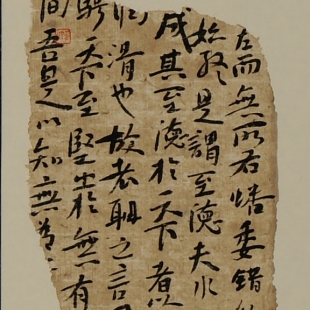 左而無所右蟠委錯
始終是謂至德夫水
成其至德於天下者以
潤滑也故老聃之言
騁天下至堅出於無有
間吾是以知無為